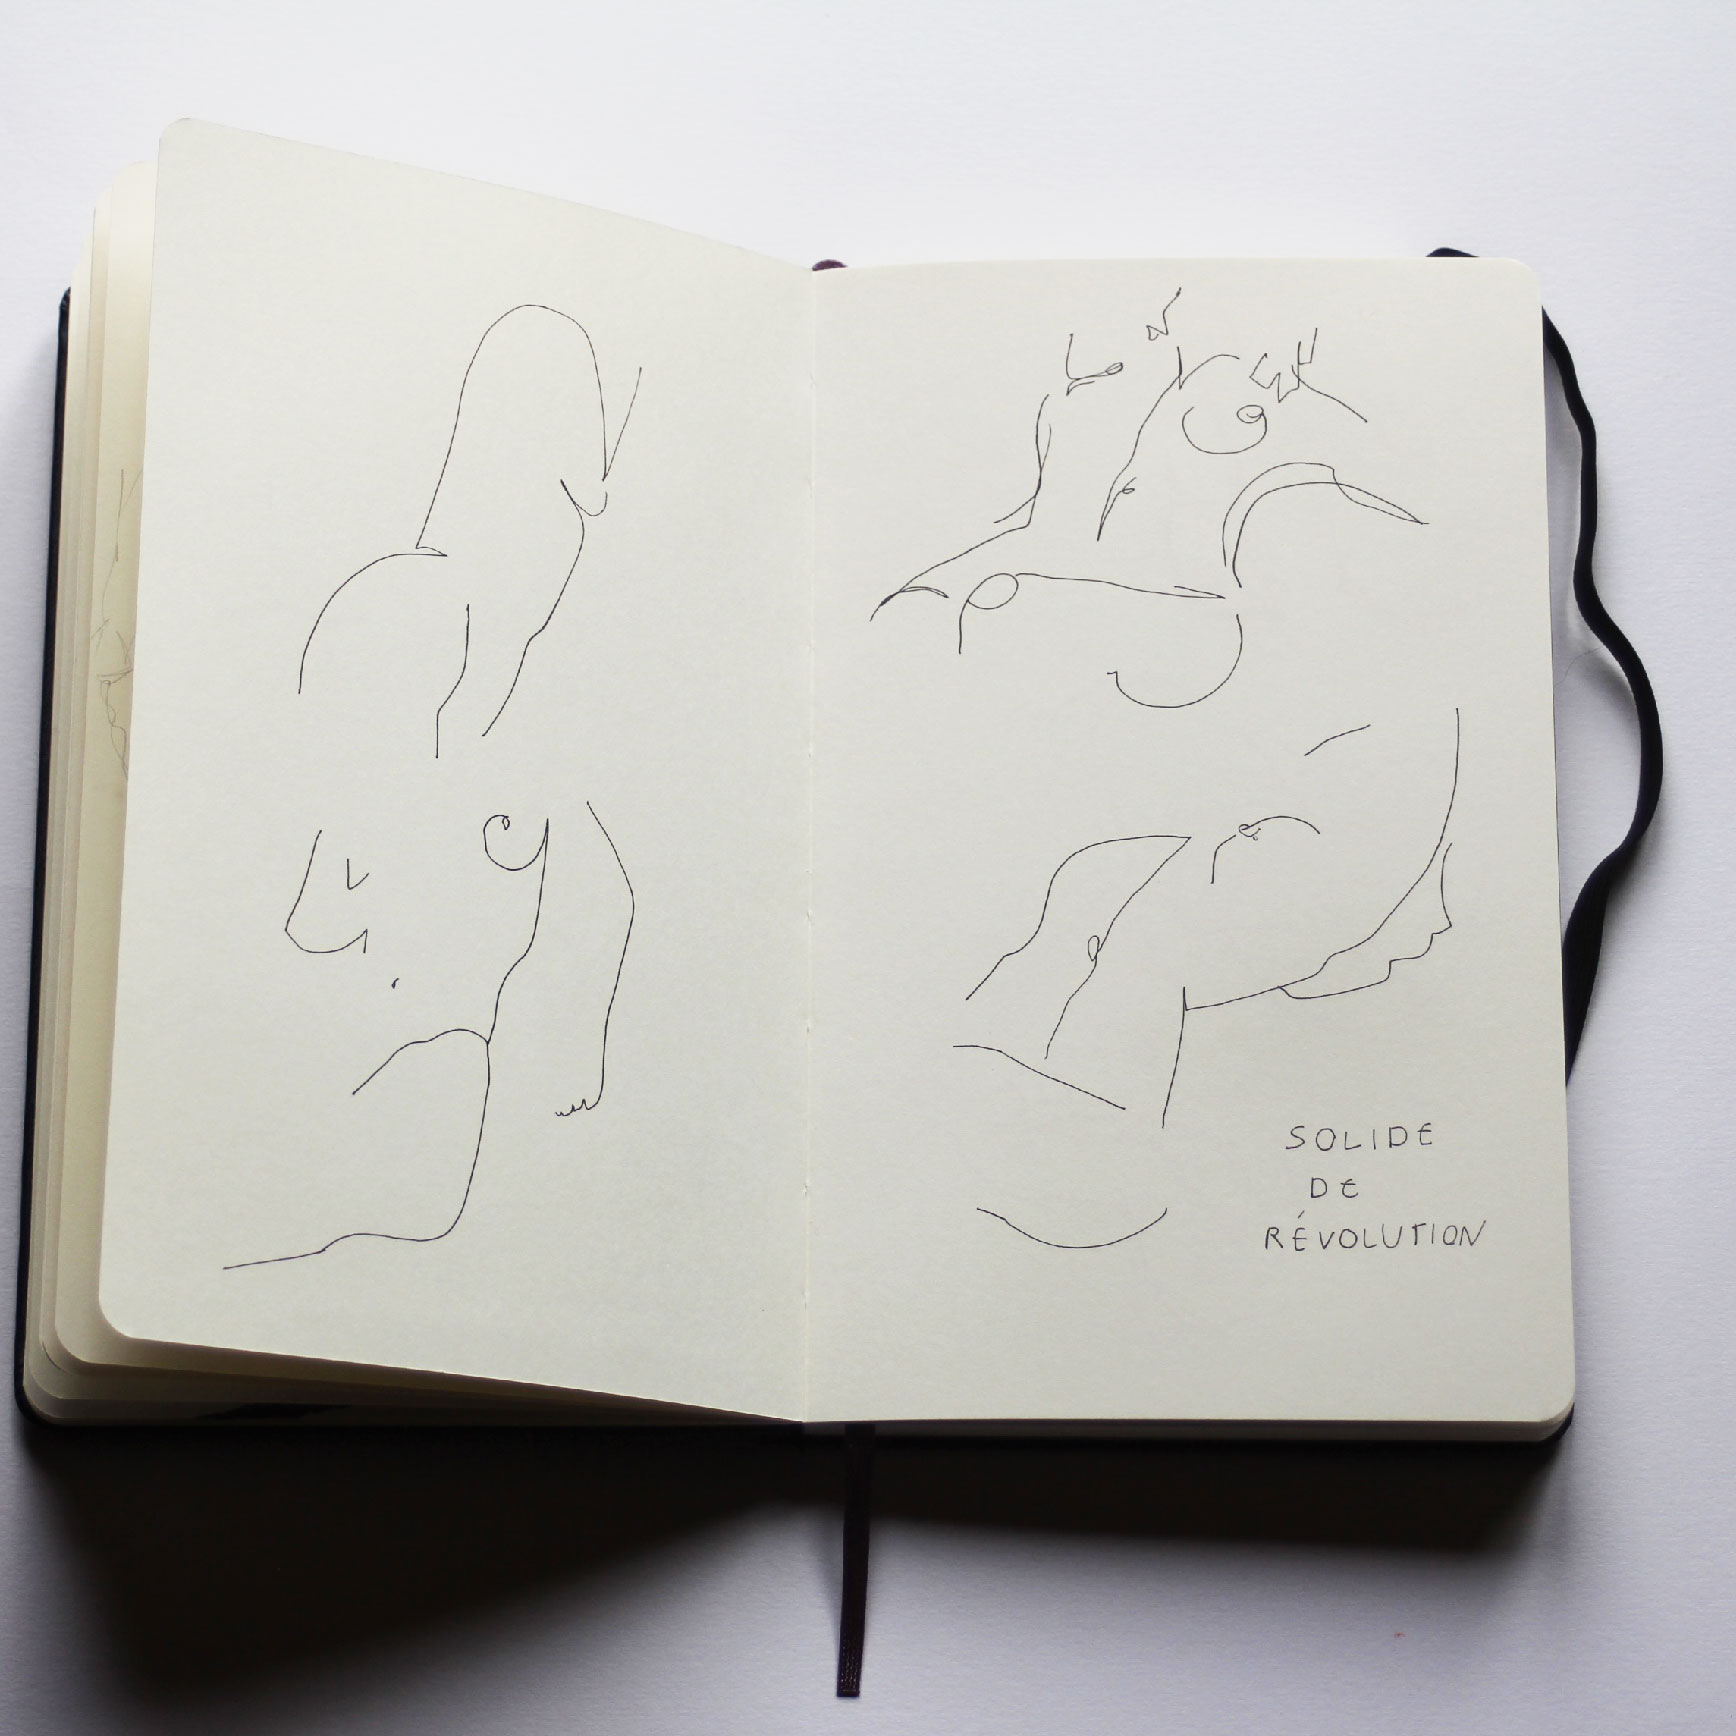 SOLIDE
DE
RÉVOLUTION